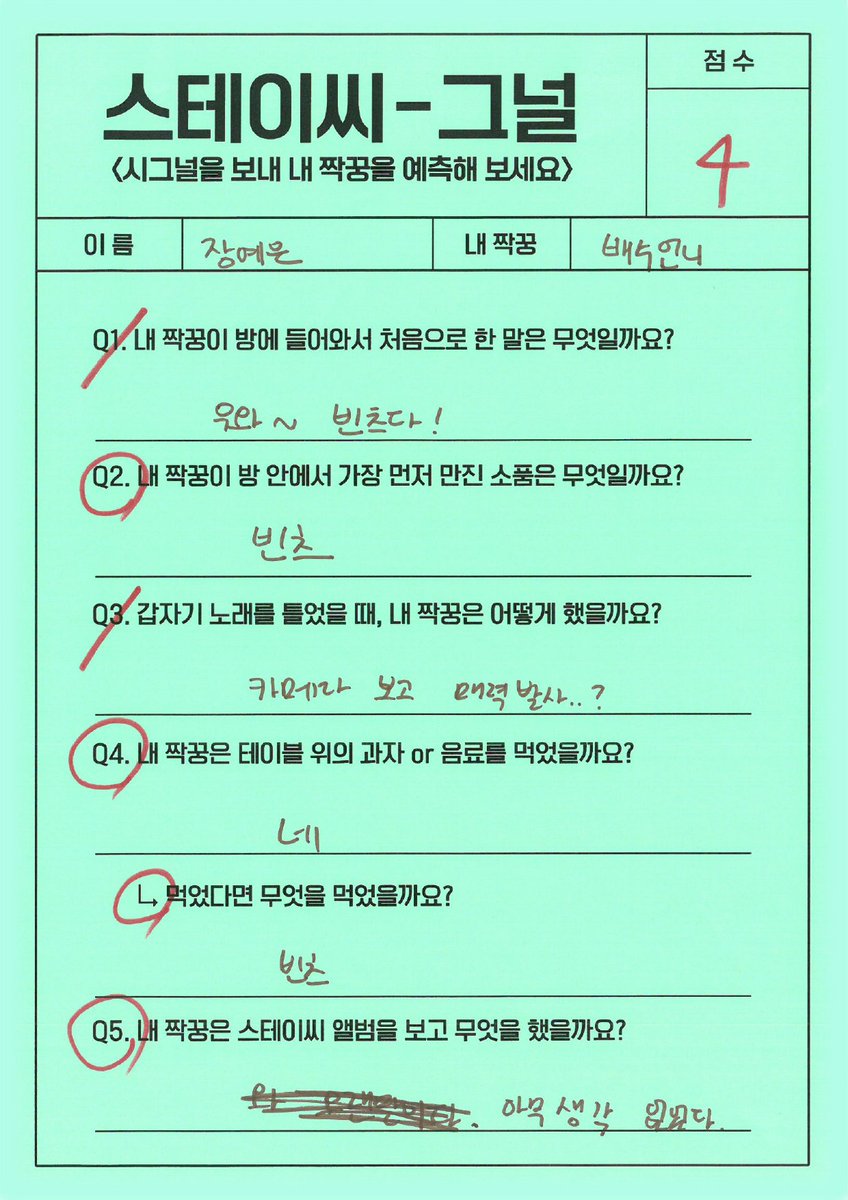 스테이씨-그널
<시그널을 보내 내 짝꿍을 예측해 보세요>
점수
4
이름 장예은 내 짝꿍 배수언니
Q1. 내 짝꿍이 방에 들어와서 처음으로 한 말은 무엇일까요?
우와~ 빈츠다!
Q2. 내 짝꿍이 방 안에서 가장 먼저 만진 소품은 무엇일까요?
빈츠
Q3. 갑자기 노래를 틀었을 때, 내 짝꿍은 어떻게 했을까요?
카메라 보고 매력발사..?
Q4. 내 짝꿍은 테이블 위의 과자 or 음료를 먹었을까요?
네
↳ 먹었다면 무엇을 먹었을까요?
빈츠
Q5. 내 짝꿍은 스테이씨 앨범을 보고 무엇을 했을까요?
와 . 아무 생각